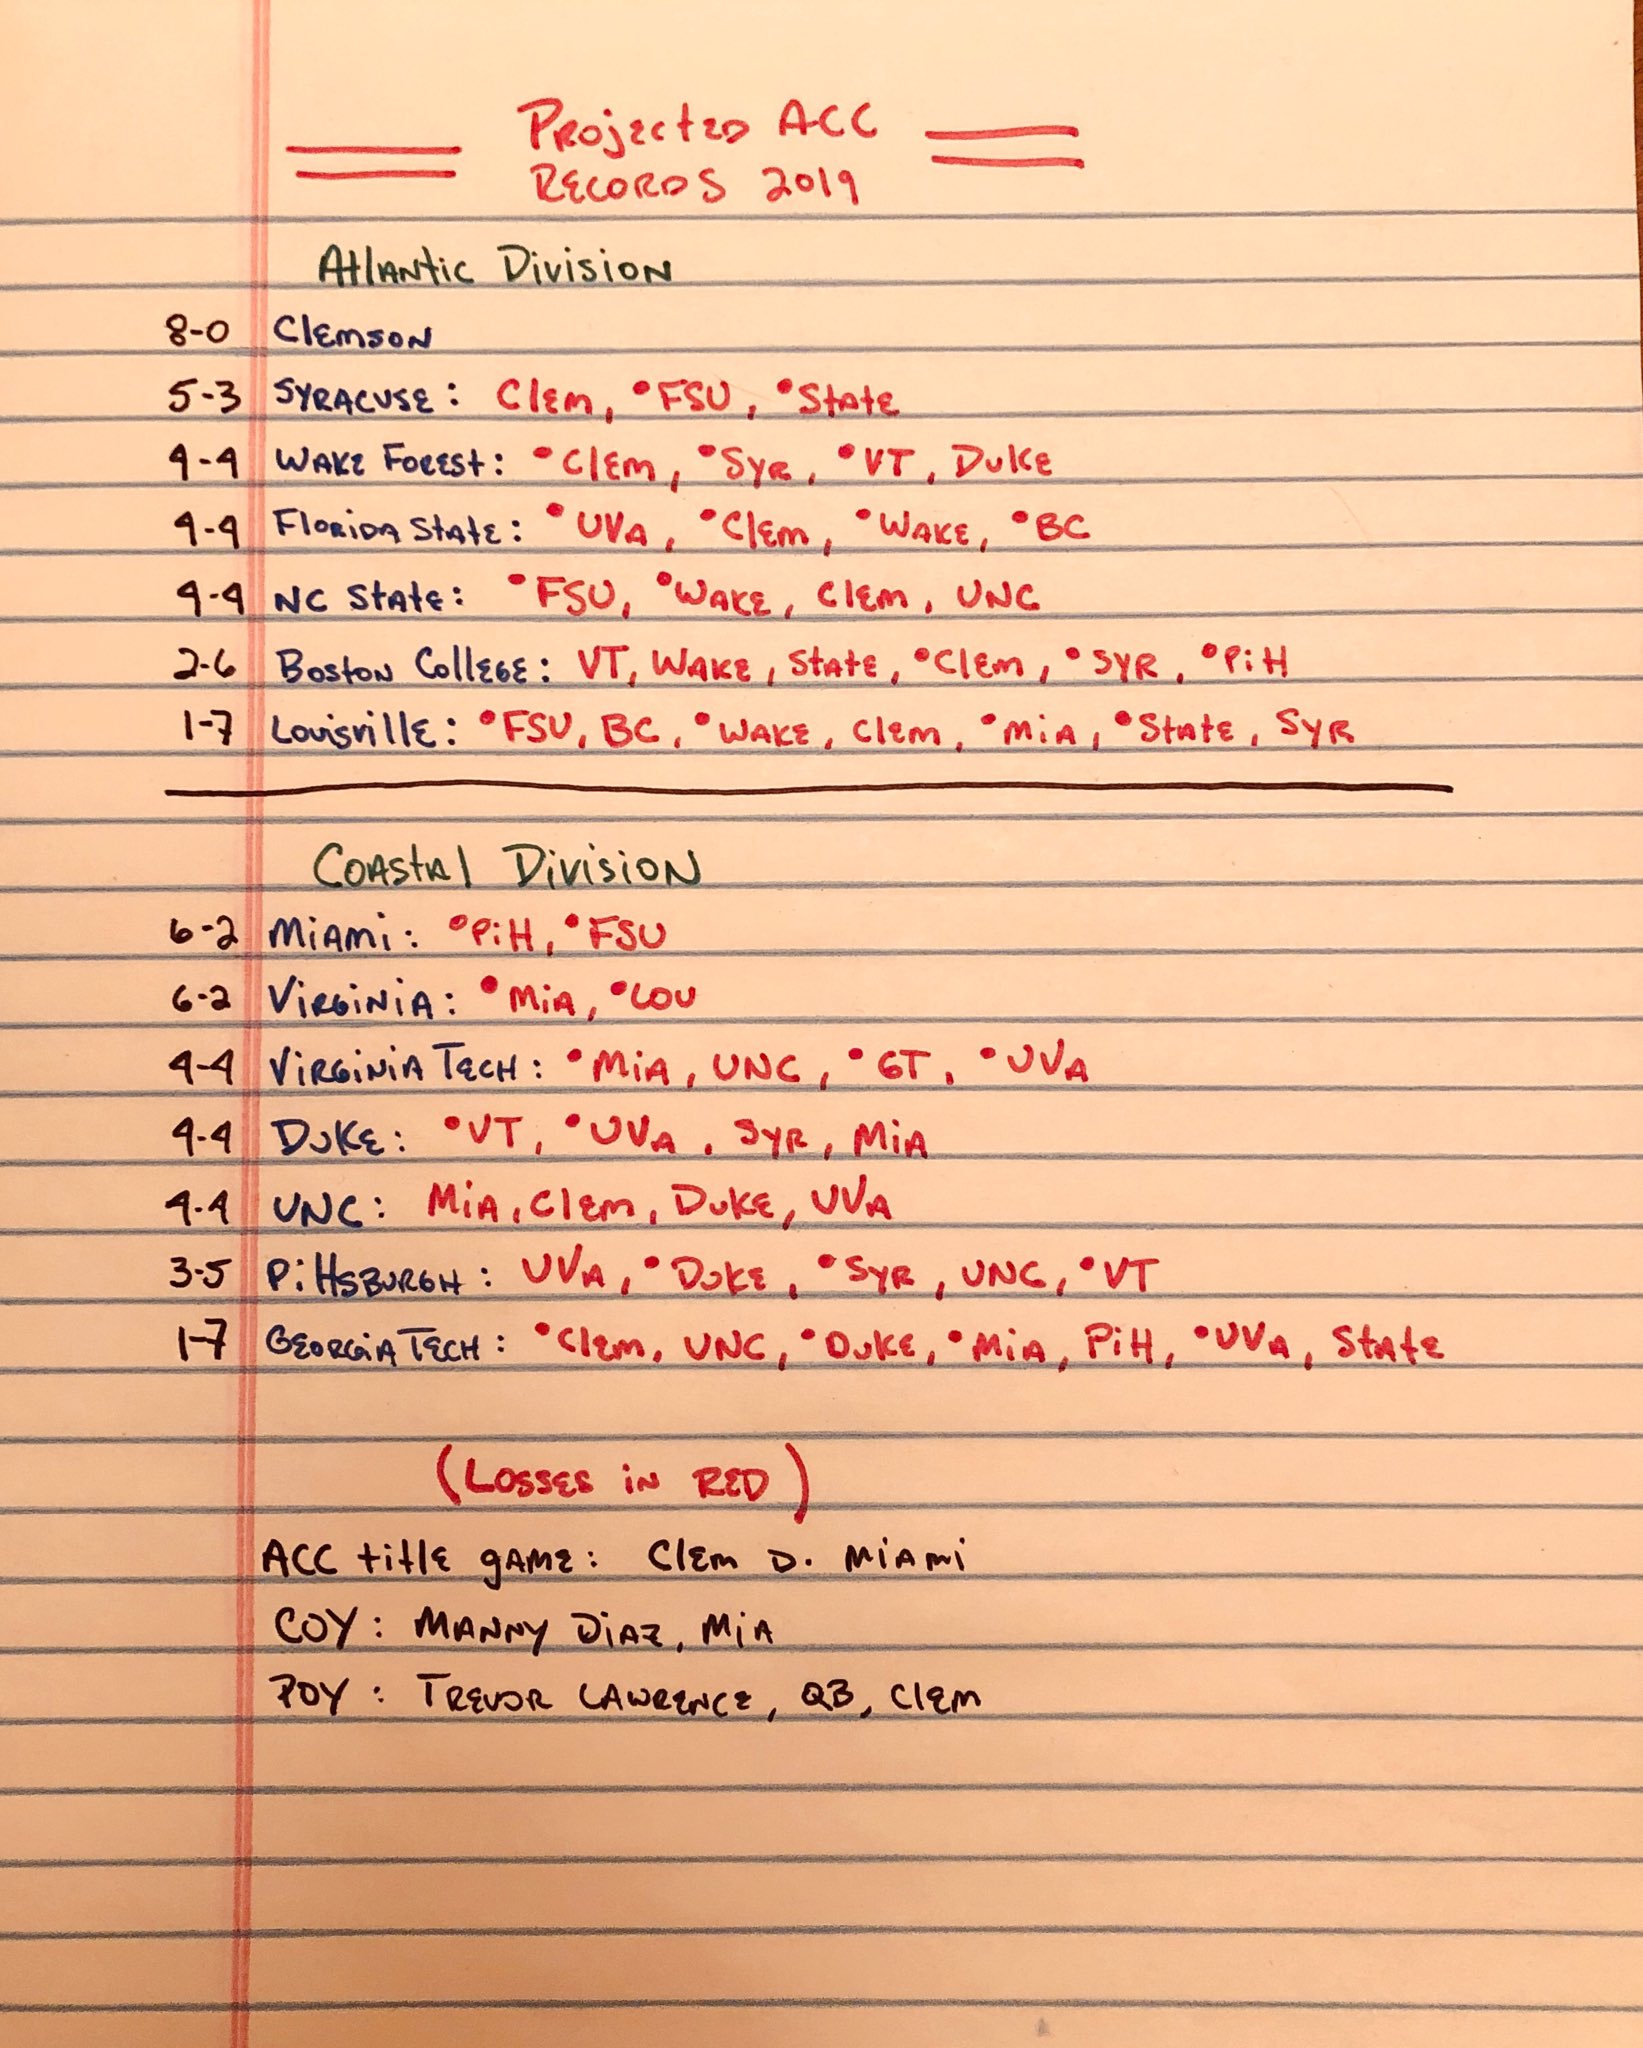 Projected ACC
Records 2019
Atlantic Division
8-0 Clemson
5-3 Syracuse: Clem, •FSU, •State
4-4 Wake Forest: •Clem, •Syr, •VT, Duke
4-4 Florida State: •UVA, •Clem, •Wake, •BC
4-4 NC State: •FSU, •Wake, Clem, UNC
2-6 Boston College: VT, Wake, State, •Clem, •Syr, •Pitt
1-7 Louisville: •FSU, BC, •Wake, Clem, •Mia, •State, Syr
Coastal Division
6-2 Miami: •Pitt, •FSU
6-2 Virginia: •Mia, •Lou
4-4 Virginia Tech: •Mia, UNC, •GT, •UVA
4-4 Duke: •VT, •UVA, Syr, Mia
4-4 UNC: Mia, Clem, Duke, UVA
3-5 Pittsburgh: UVA, •Duke, •Syr, UNC, •VT
1-7 Georgia Tech: •Clem, UNC, •Duke, •Mia, Pitt, •UVA, State
(Losses in Red)
ACC title game: Clem D. Miami
COY: Manny Diaz, Mia
POY: Trevor Lawrence, QB, Clem